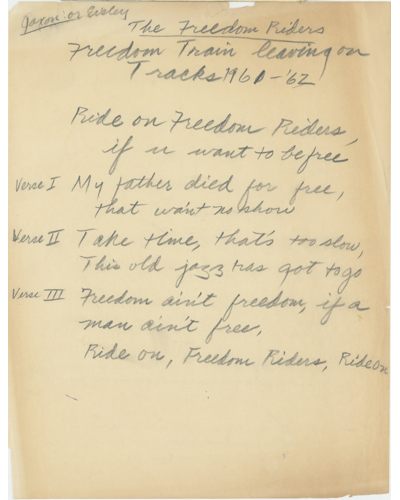 Jaxon or
The Freedom Riders
Freedom Train leaving on
Tracks 1961-'62
Ride on Freedom Riders,
if u want to be free
Verse I My father died for free,
that wan't no show
Verse II Take time, that's too slow,
This old jazz has got to go
Verse III Freedom ain't freedom, if a
man ain't free,
Ride on, Freedom Riders, Ride on